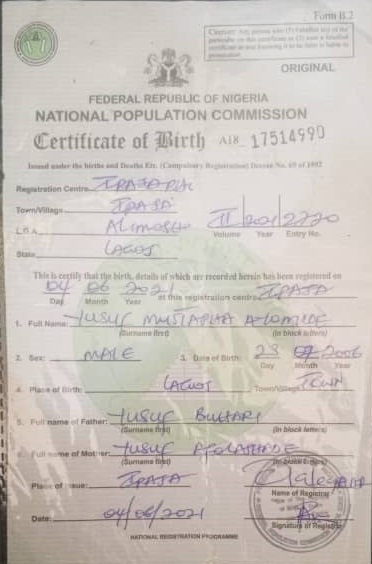 Form B.2
ORIGINAL
FEDERAL REPUBLIC OF NIGERIA
NATIONAL POPULATION COMMISSION
Certificate of Birth A18 17514990
Issued under the births and Deaths Etc. (Compulsory Registration) Decree No. 69 of 1992
Registration Centre IPAJA
Town/Village IPAJA
L.G.A ALIMOSHO II 2021 2220
Volume Year Entry No.
State LAGOS
This is certify that the birth, details of which are recorded herein has been registered on
04 06 2021 at this registration centre IPAJA
Day Month Year
1. Full Name: YUSUF MUSTAPHA
(Surname first) (In block letters)
2. Sex: MALE 3. Date of Birth: 2006
Day Month Year
4. Place of Birth: LAGOS Town/Village TOWN
5. Full name of Father: YUSUF BUHARI
(Surname first) (In block letters)
6. Full name of Mother: YUSUF
(Surname first) (In block letters)
Place of Issue: IPAJA
Name of Registrar
Date: 04/06/2021
Signature of Registrar
NATIONAL REGISTRATION PROGRAMME